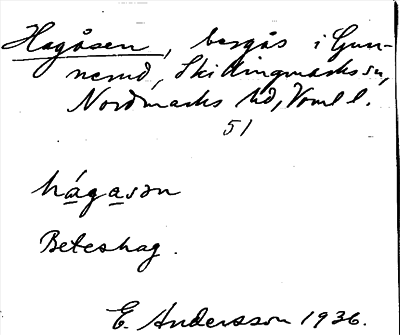 Hagåsen, bergås i Gun-
nerud, Skillingmarks sn,
Nordmarks hd, Vrml l.
51
hágasən
Beteshag.
E. Andersson 1936.